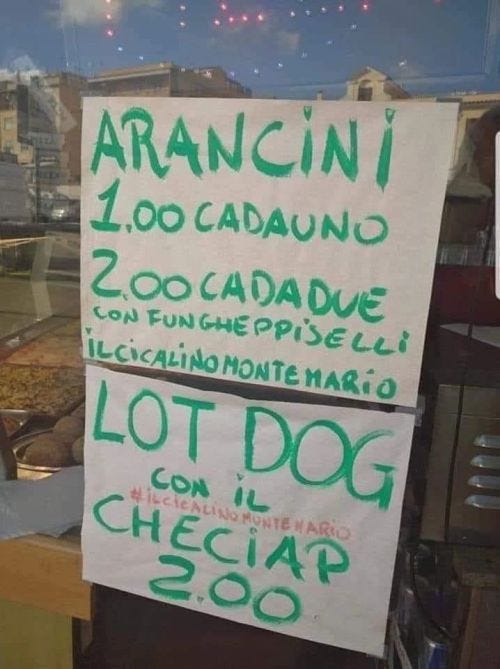 ARANCINI
1.00 CADAUNO
2.00 CADADUE
CON FUNGHEPPISELLI
ILCICALINOMONTEMARIO
LOT DOG
CON IL
#ILCICALINOMONTEMARIO
CHECIAP
2.00